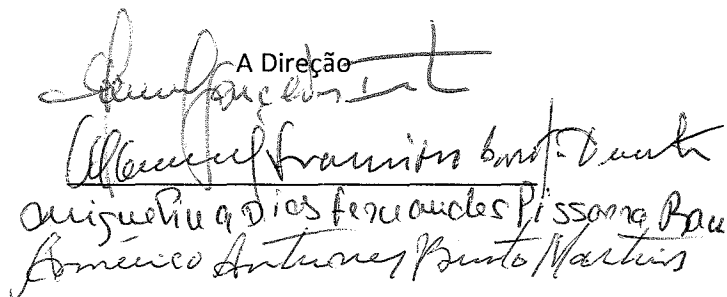 A Direção
Manuel Gonçalves
Manuel Francisco Duarte
Miguelina Dias Fernandes Pissarra
Américo Antunes Bento Martins